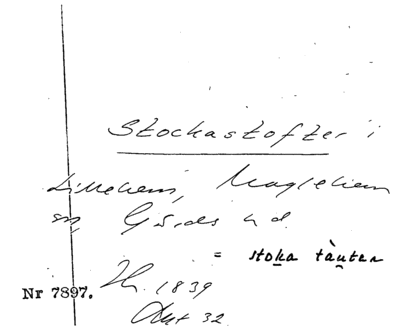 Stockastofter i
Lillehem, Maglehem
sn, Gärds hd.
= stoka tàutar
Nr 7897. Hr. 1839
Akt 32